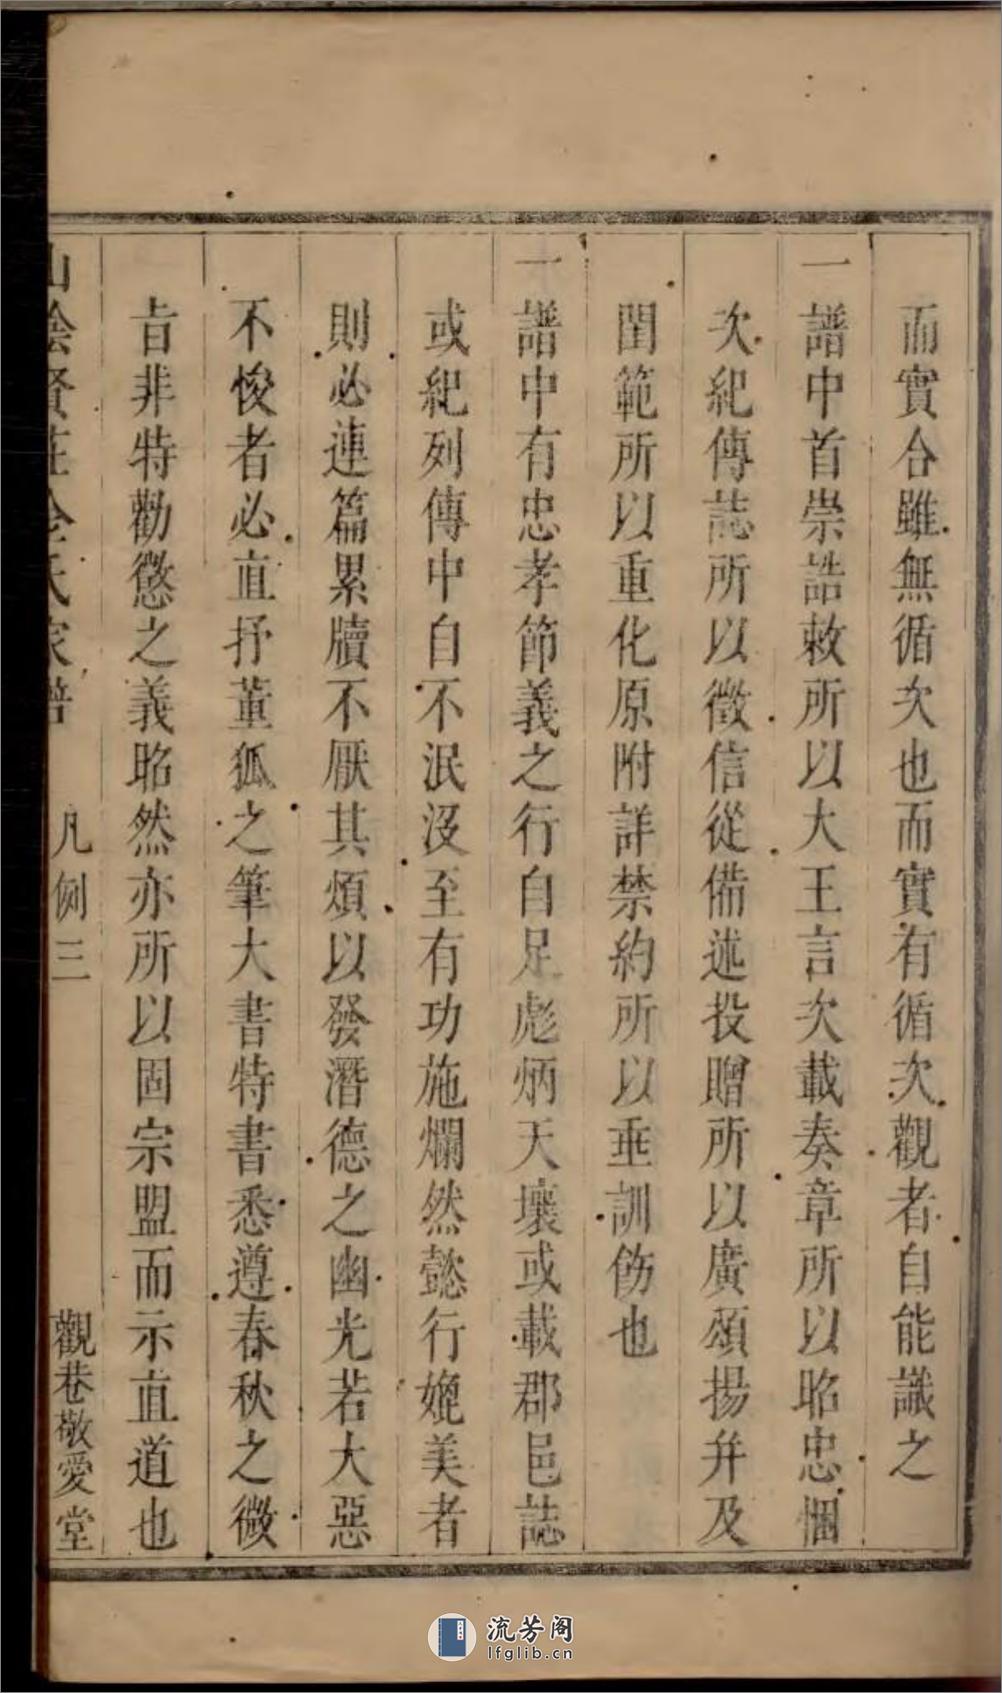 而實合雖無循次也而實有循次觀者自能識之
一譜中首崇誥敕所以大王言次載奏章所以昭忠悃
次紀傳誌所以徵信從備述投贈所以廣頌揚幷及
閨範所以重化原附詳禁約所以垂訓飭也
一譜中有忠孝節義之行自足彪炳天壤或載郡邑誌
或紀列傳中自不泯沒至有功施爛然懿行媲美者
則必連篇累牘不厭其煩以發潛德之幽光若大惡
不悛者必直抒董狐之筆大書特書悉遵春秋之微
旨非特勸懲之義昭然亦所以固宗盟而示直道也
山陰賢莊金氏家譜 凡例三 觀巷敬愛堂
流芳阁
lfglib.cn